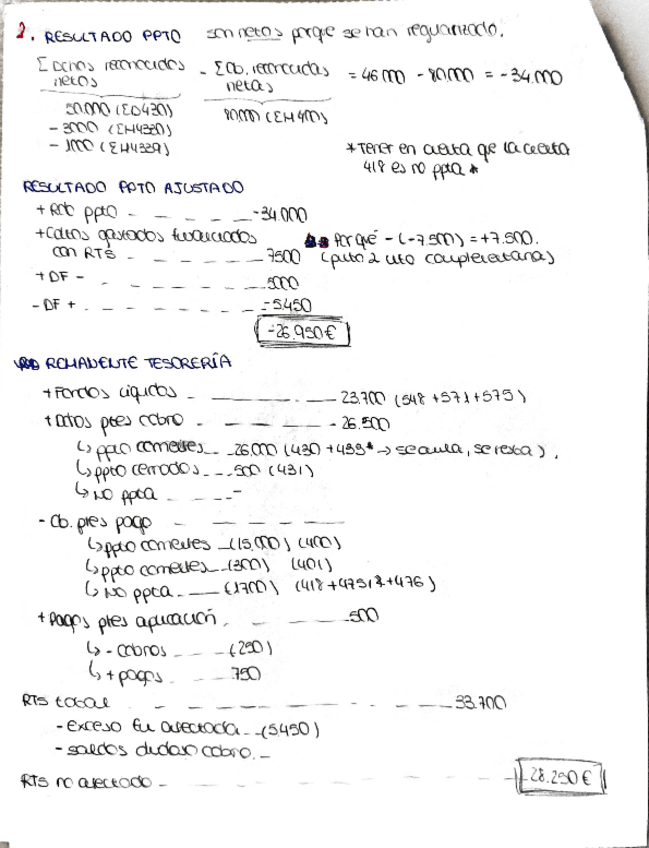 2. RESULTADO PPTO son netos porque se han regularizado.
Σ Dchos reconocidos netos - Σ Ob. reconocidas netas = 46.000 - 80.000 = -34.000
50.000 (ΣD430)
- 3000 (ΣH4330)
- 1000 (ΣH4339)
80.000 (ΣH400)
* Tener en cuenta que la cuenta
418 es no ppta *
RESULTADO PPTO AJUSTADO
+ Rdo ppto - - - - - -34.000
+ Cdtos gastados financiados
con RTS - - - - 7500
Por qué - (-7.500) = +7.500.
+ DF - - - - - 5000
- DF + - - - - - -5.450
-26.950€
REMANENTE TESORERÍA
+ Fondos líquidos - - - 23.700 (548 + 571 + 575)
+ Dchos ptes cobro - - - - 26.500
↳ ppto corrientes - - 26.000 (430 + 433* → se anula, se resta).
↳ ppto cerrados - - - 500 (431)
↳ No ppta - - - -
- Ob. ptes pago - - - -
↳ ppto corrientes - (15.000) (400)
↳ ppto corrientes - (300) (401)
↳ No ppta - - (1700) (418 + 4751 + 476)
+ Pagos ptes aplicación. - - - - 500
↳ - cobros - - - (250)
↳ + pagos - - 750
RTS total - - - - - - 33.700
- Exceso fin afectada - - (5450)
- saldos dudoso cobro. -
RTS no afectado - - - - - 28.250 €